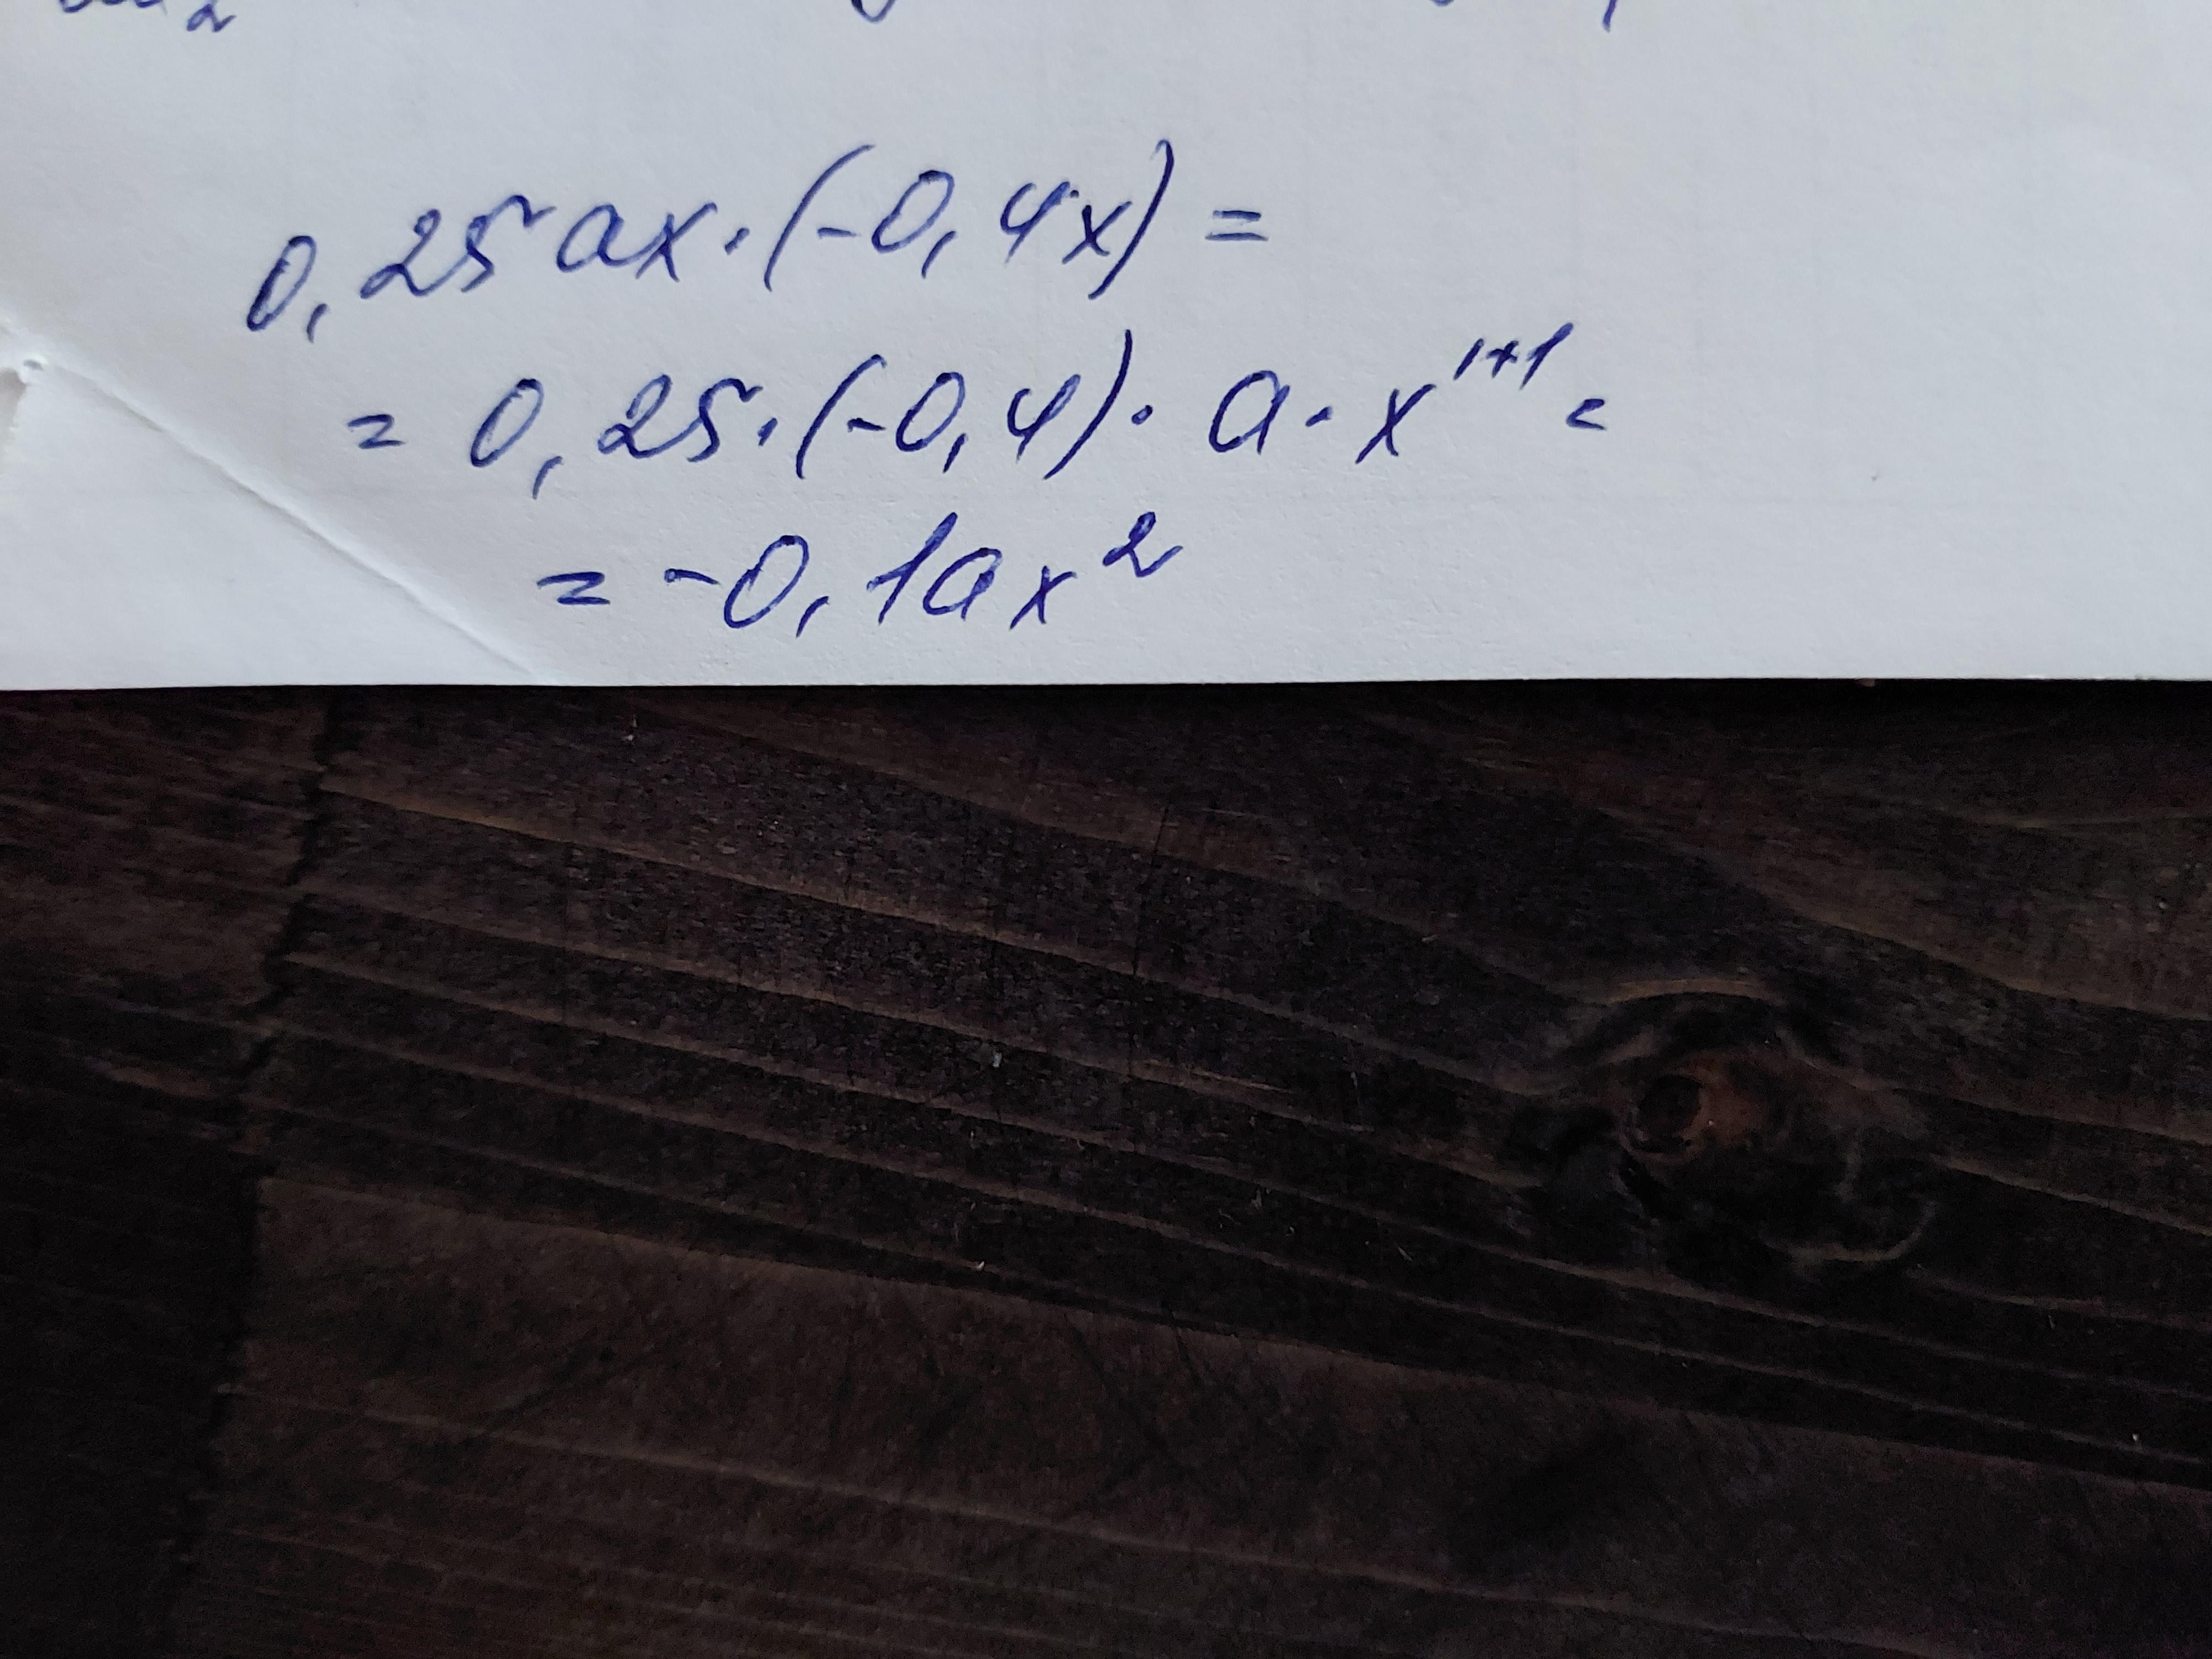 0,25ax·(-0,4x)=
= 0,25·(-0,4)·a·x¹⁺¹=
= -0,1ax²